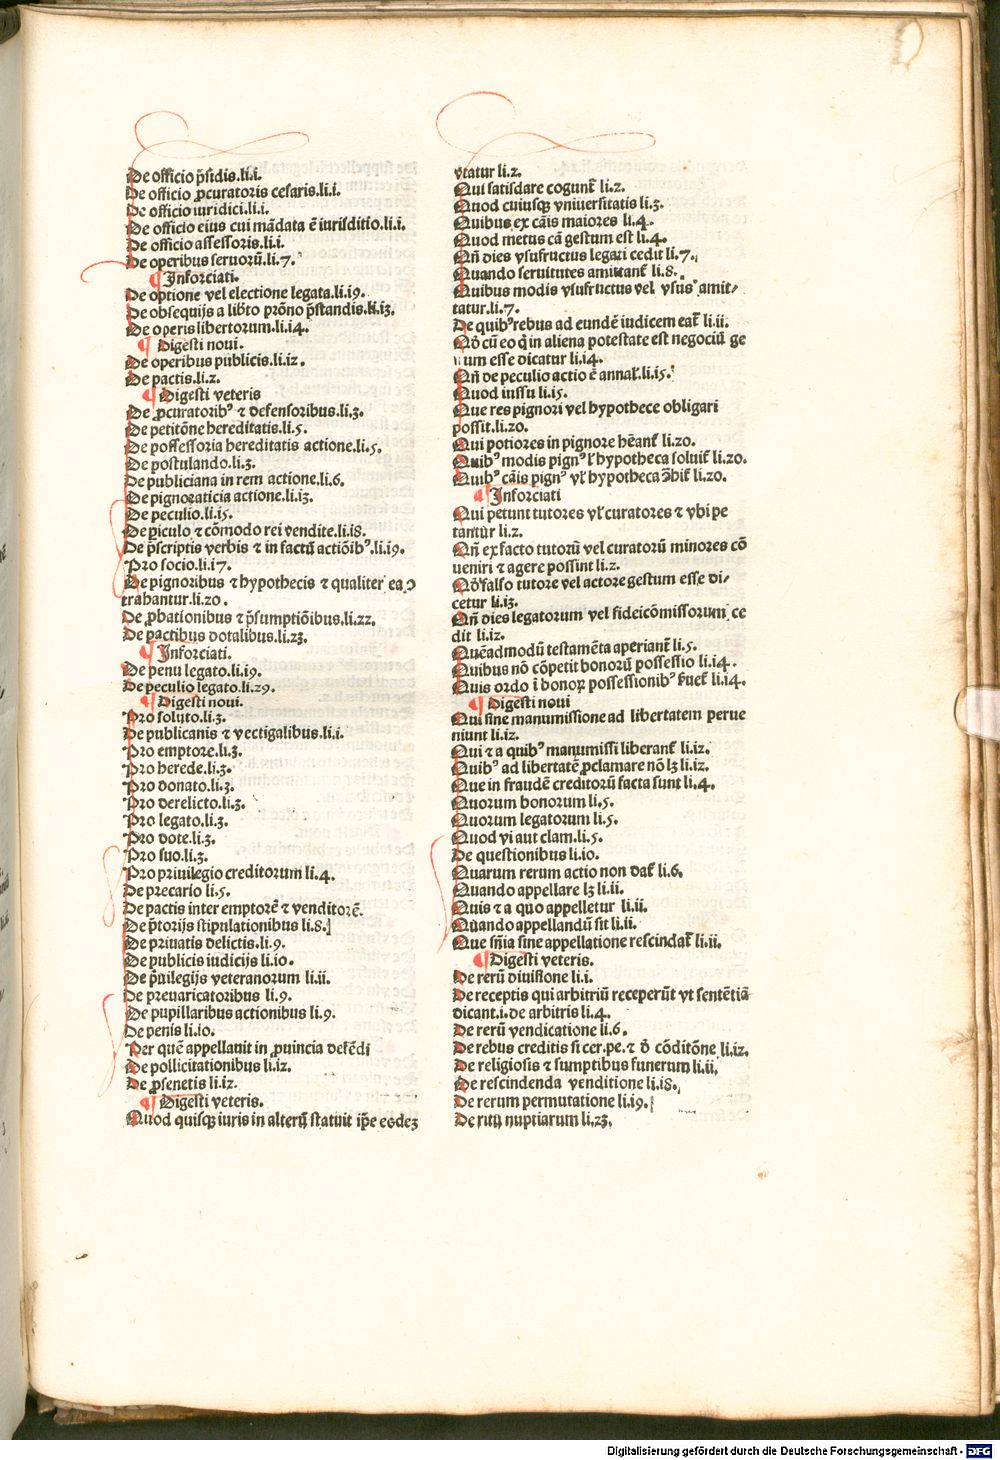 De officio p̄sidis.li.i.
De officio ꝓcuratoris cesaris.li.i.
De officio iuridici.li.i.
De officio eius cui mādata ē iurisditio.li.i.
De officio assessoris.li.i.
De operibus seruorū.li.7.
¶ Inforciati.
De optione vel electione legata.li.i9.
De obsequijs a lib̄to prōno p̄standis.li.i3.
De operis libertorum.li.i4.
¶ Digesti noui.
De operibus publicis.li.i2.
De pactis.li.2.
¶ Digesti veteris
De ꝓcuratoribꝰ ⁊ defensoribus.li.3.
De petitōne hereditatis.li.5.
De possessoria hereditatis actione.li.5.
De postulando.li.3.
De publiciana in rem actione.li.6.
De pignoraticia actione.li.i3.
De peculio.li.i5.
De ꝑiculo ⁊ cōmodo rei vendite.li.i8.
De p̄scriptis verbis ⁊ in factū actiōibꝰ.li.i9.
Pro socio.li.i7.
De pignoribus ⁊ hypothecis ⁊ qualiter ea ↄ
trahantur.li.20.
De ꝓbationibus ⁊ p̄sumptiōibus.li.22.
De pactibus dotalibus.li.23.
¶ Inforciati.
De penu legato.li.i9.
De peculio legato.li.29.
¶ Digesti noui.
Pro soluto.li.3.
De publicanis ⁊ vectigalibus.li.i.
Pro emptore.li.3.
Pro herede.li.3.
Pro donato.li.3.
Pro derelicto.li.3.
Pro legato.li.3.
Pro dote.li.3.
Pro suo.li.3.
Pro priuilegio creditorum li.4.
De precario li.5.
De pactis inter emptorē ⁊ venditorē.
De p̄torijs stipulationibus li.8.
De priuatis delictis.li.9.
De publicis iudicijs li.io.
De p̄uilegijs veteranorum li.ii.
De preuaricatoribus li.9.
De pupillaribus actionibus li.9.
De penis li.io.
Per quē appellauit in ꝓuincia defēdi
De pollicitationibus li.i2.
De ꝓsenetis li.i2.
¶ Digesti veteris.
Quod quisqꝫ iuris in alterū statuit ip̄e eodeꝫ
vtatur li.2.
Qui satisdare cogunt̄ li.2.
Quod cuiusqꝫ vniuersitatis li.3.
Quibus ex cāis maiores li.4.
Quod metus cā gestum est li.4.
Qn̄ dies vsufructus legari cedit li.7.
Quando seruitutes amittant̄ li.8.
Quibus modis vsufructus vel vsus amit/
tatur.li.7.
De quibꝰ rebus ad eundē iudicem eat̄ li.ii.
Qō cū eo q̄ in aliena potestate est negociū ge
um esse dicatur li.i4.
Qn̄ de peculio actio ē annal̄.li.i5.
Quod iussu li.i5.
Que res pignori vel hypothece obligari
possit.li.20.
Qui potiores in pignore hēant̄ li.20.
Quibꝰ modis pignꝰ vl̄ hypotheca soluit̄ li.20.
Quibꝰ cāis pignꝰ vl̄ hypotheca ↄ̄hit̄ li.20.
¶ Inforciati
Qui petunt tutores vl̄ curatores ⁊ vbi pe
tantur li.2.
Qn̄ ex facto tutorū vel curatorū minores cō
ueniri ⁊ agere possint li.2.
Qō falso tutore vel actore gestum esse di/
cetur li.i3.
Qn̄ dies legatorum vel fideicōmissorum ce
dit li.i2.
Quēadmodū testamēta aperiant̄ li.5.
Quibus nō cōpetit bonorū possessio li.i4.
Quis ordo ī bonoꝝ possessionibꝰ ẜuet̄ li.i4.
¶ Digesti noui
Qui sine manumissione ad libertatem perue
niunt li.i2.
Qui ⁊ a quibꝰ manumissi liberant̄ li.i2.
Quibꝰ ad libertatē ꝓclamare nō lꝫ li.i2.
Que in fraudē creditorū facta sunt li.4.
Quorum bonorum li.5.
Quorum legatorum li.5.
Quod vi aut clam.li.5.
De questionibus li.io.
Quarum rerum actio non dat̄ li.6.
Quando appellare lꝫ li.ii.
Quis ⁊ a quo appelletur li.ii.
Quando appellandū sit li.ii.
Que sn̄ia sine appellatione rescindat̄ li.ii.
¶ Digesti veteris.
De rerū diuisione li.i.
De receptis qui arbitriū receperūt vt sentētiā
dicant.i.de arbitris li.4.
De rerū vendicatione li.6.
De rebus creditis si cer.pe.⁊ d̄ cōditōne li.i2.
De religiosis ⁊ sumptibus funerum li.ii.
De rescindenda venditione li.i8.
De rerum permutatione li.i9.
De ritu nuptiarum li.23.
Digitalisierung gefördert durch die Deutsche Forschungsgemeinschaft - DFG